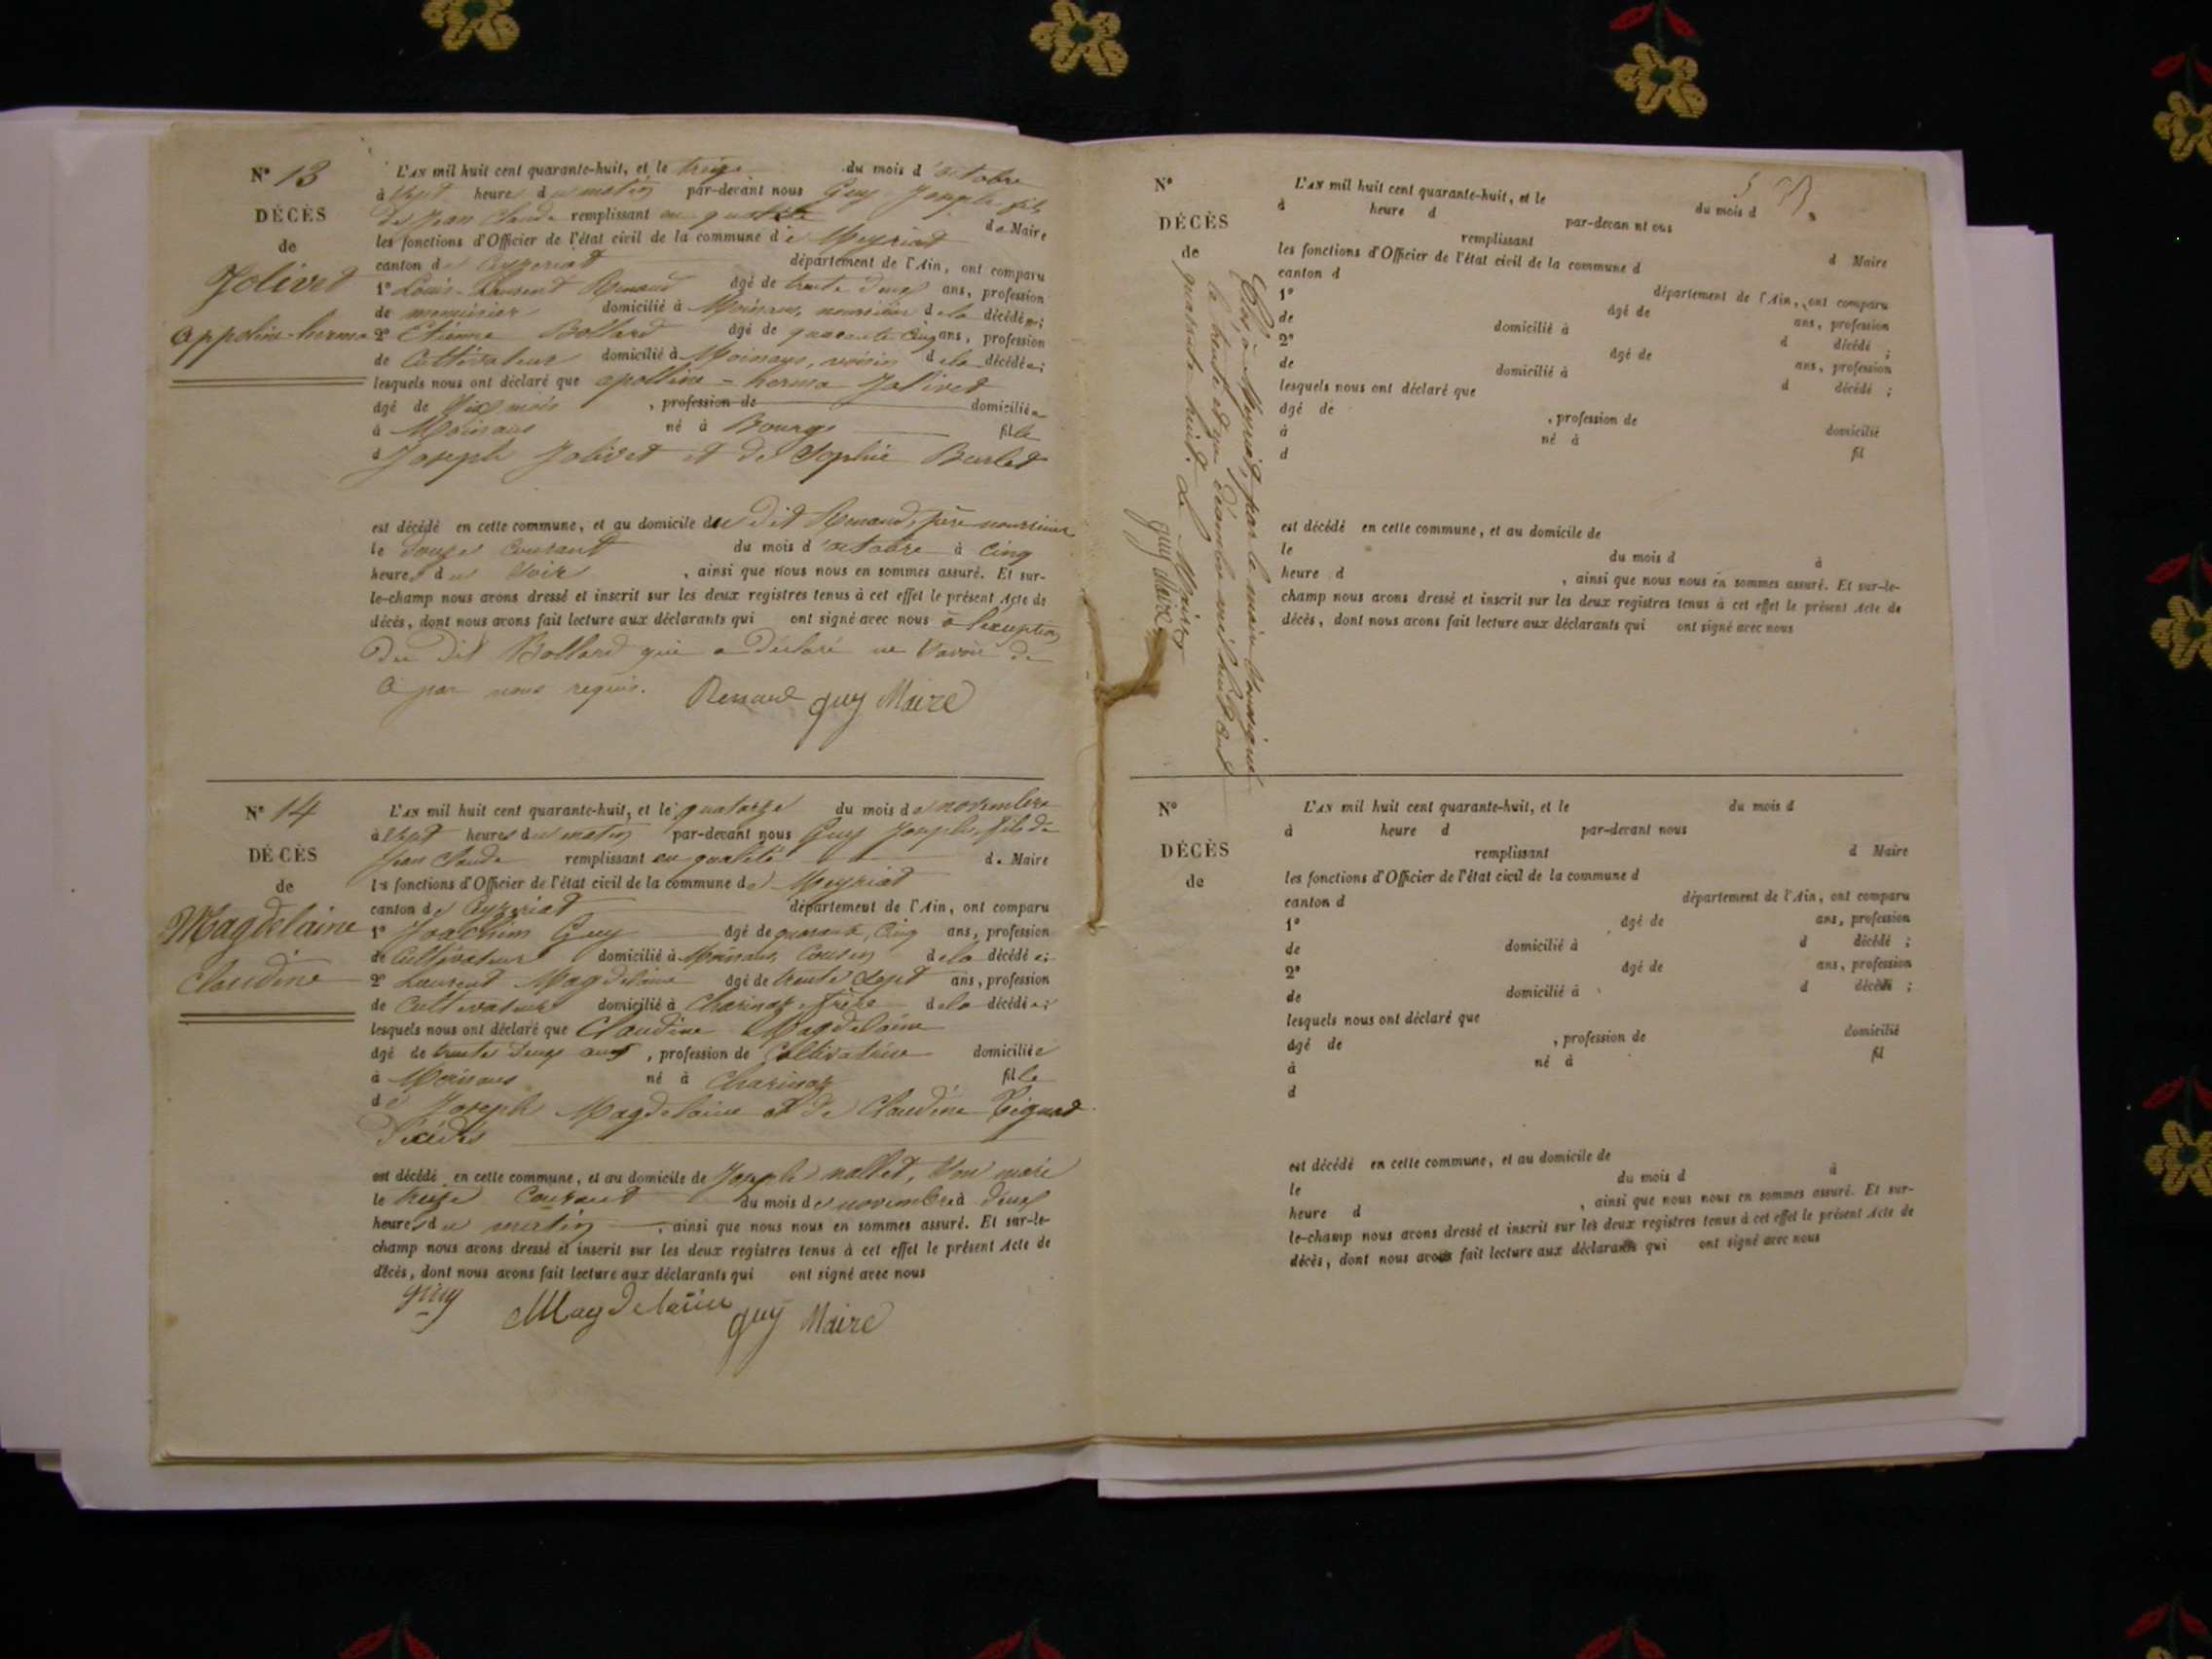 N° 13
DÉCÈS
de
Jolivet
Appoline-herma
L'AN mil huit cent quarante-huit, et le treize du mois d'octobre
à sept heures du matin par-devant nous Guy Joseph fils
de Jean Claude remplissant en qualité de Maire
les fonctions d'Officier de l'état civil de la commune de Meyriat
canton de Ceyzeriat département de l'Ain, ont comparu
1° Louis-Laurent Renaud âgé de trente deux ans, profession
de menuisier domicilié à Moinans, nourricier de la décédée;
2° Etienne Bollard âgé de quarante cinq ans, profession
de Cultivateur domicilié à Moinans, voisin de la décédée;
lesquels nous ont déclaré que apolline-herma Jolivet
âgé de dix mois , profession de domiciliée
à Moinans né à Bourg fille
d Joseph Jolivet et de Sophie Burlet
est décédé en cette commune, et au domicile du dit Renaud, père nourricier
le douze Courant du mois d'octobre à Cinq
heures du Soir , ainsi que nous nous en sommes assuré. Et sur-
le-champ nous avons dressé et inscrit sur les deux registres tenus à cet effet le présent Acte de
décès, dont nous avons fait lecture aux déclarants qui ont signé avec nous à l'exception
Du Dit Bollard qui a Déclaré ne Savoir de
Ce par nous requis. Renaud guy Maire
N° 14
DÉCÈS
de
Magdelaine
Claudine
L'AN mil huit cent quarante-huit, et le quatorze du mois de novembre
à Sept heures du matin par-devant nous Guy Joseph, fils de
Jean Claude remplissant en qualité de Maire
les fonctions d'Officier de l'état civil de la commune de Meyriat
canton de Ceyzeriat département de l'Ain, ont comparu
1° Joachim Guy âgé de quarante, Cinq ans, profession
de Cultivateur domicilié à Moinans, Cousin de la décédée;
2° Laurent Magdelaine âgé de trente Sept ans, profession
de Cultivateur domicilié à Charinaz, frère de la décédée;
lesquels nous ont déclaré que Claudine Magdelaine
âgé de trente Deux ans , profession de Cultivatrice domiciliée
à Moinans né à Charinaz fille
de Joseph Magdelaine et de Claudine
Décédés
est décédé en cette commune, et au domicile de Joseph nallet, Son mari
le treize Courant du mois de novembre à Deux
heures du matin , ainsi que nous nous en sommes assuré. Et sur-le-
champ nous avons dressé et inscrit sur les deux registres tenus à cet effet le présent Acte de
décès, dont nous avons fait lecture aux déclarants qui ont signé avec nous
guy Magdelaine guy Maire
N°
DÉCÈS
de
Clos à Meyriat, par le maire Soussigné
le trente et un décembre mil huit Cent
quarante huit. Le Maire
guy Maire
L'AN mil huit cent quarante-huit, et le du mois d
à heure d par-devan nt ous
remplissant d Maire
les fonctions d'Officier de l'état civil de la commune d
canton d département de l'Ain, ont comparu
1° âgé de ans, profession
de domicilié à d décédé ;
2° âgé de ans, profession
de domicilié à d décédé ;
lesquels nous ont déclaré que
âgé de , profession de domicilié
à né à fil
d
est décédé en cette commune, et au domicile de
le du mois d à
heure d , ainsi que nous nous en sommes assuré. Et sur-le-
champ nous avons dressé et inscrit sur les deux registres tenus à cet effet le présent Acte de
décès, dont nous avons fait lecture aux déclarants qui ont signé avec nous
N°
DÉCÈS
de
L'AN mil huit cent quarante-huit, et le du mois d
à heure d par-devant nous
remplissant d Maire
les fonctions d'Officier de l'état civil de la commune d
canton d département de l'Ain, ont comparu
1° âgé de ans, profession
de domicilié à d décédé ;
2° âgé de ans, profession
de domicilié à d décédé ;
lesquels nous ont déclaré que
âgé de , profession de domicilié
à né à fil
d
est décédé en cette commune, et au domicile de
le du mois d à
heure d , ainsi que nous nous en sommes assuré. Et sur-
le-champ nous avons dressé et inscrit sur les deux registres tenus à cet effet le présent Acte de
décès, dont nous avons fait lecture aux déclarants qui ont signé avec nous